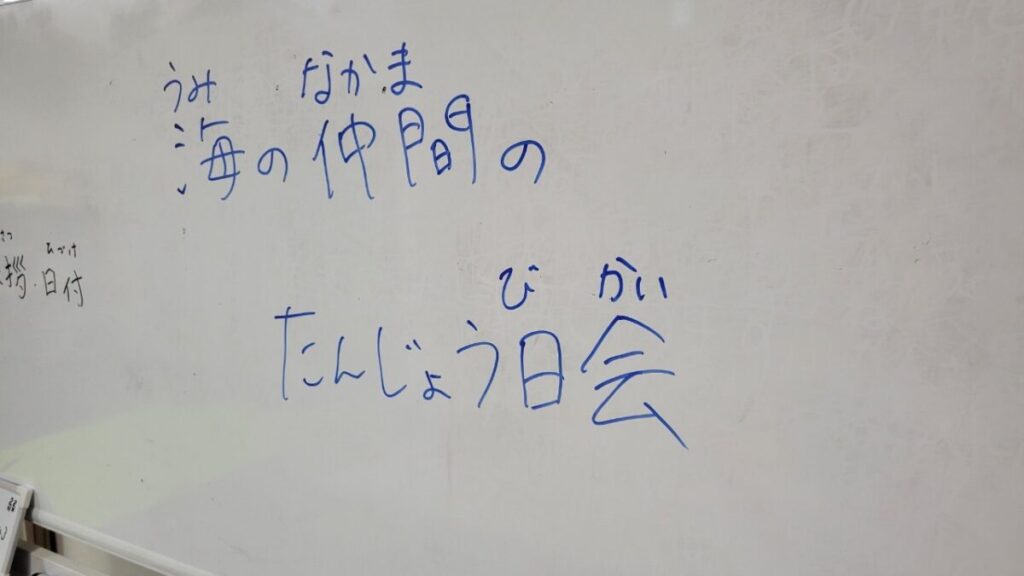 うみ なかま
海の仲間の
ひづけ
拶・日付
び かい
たんじょう日会